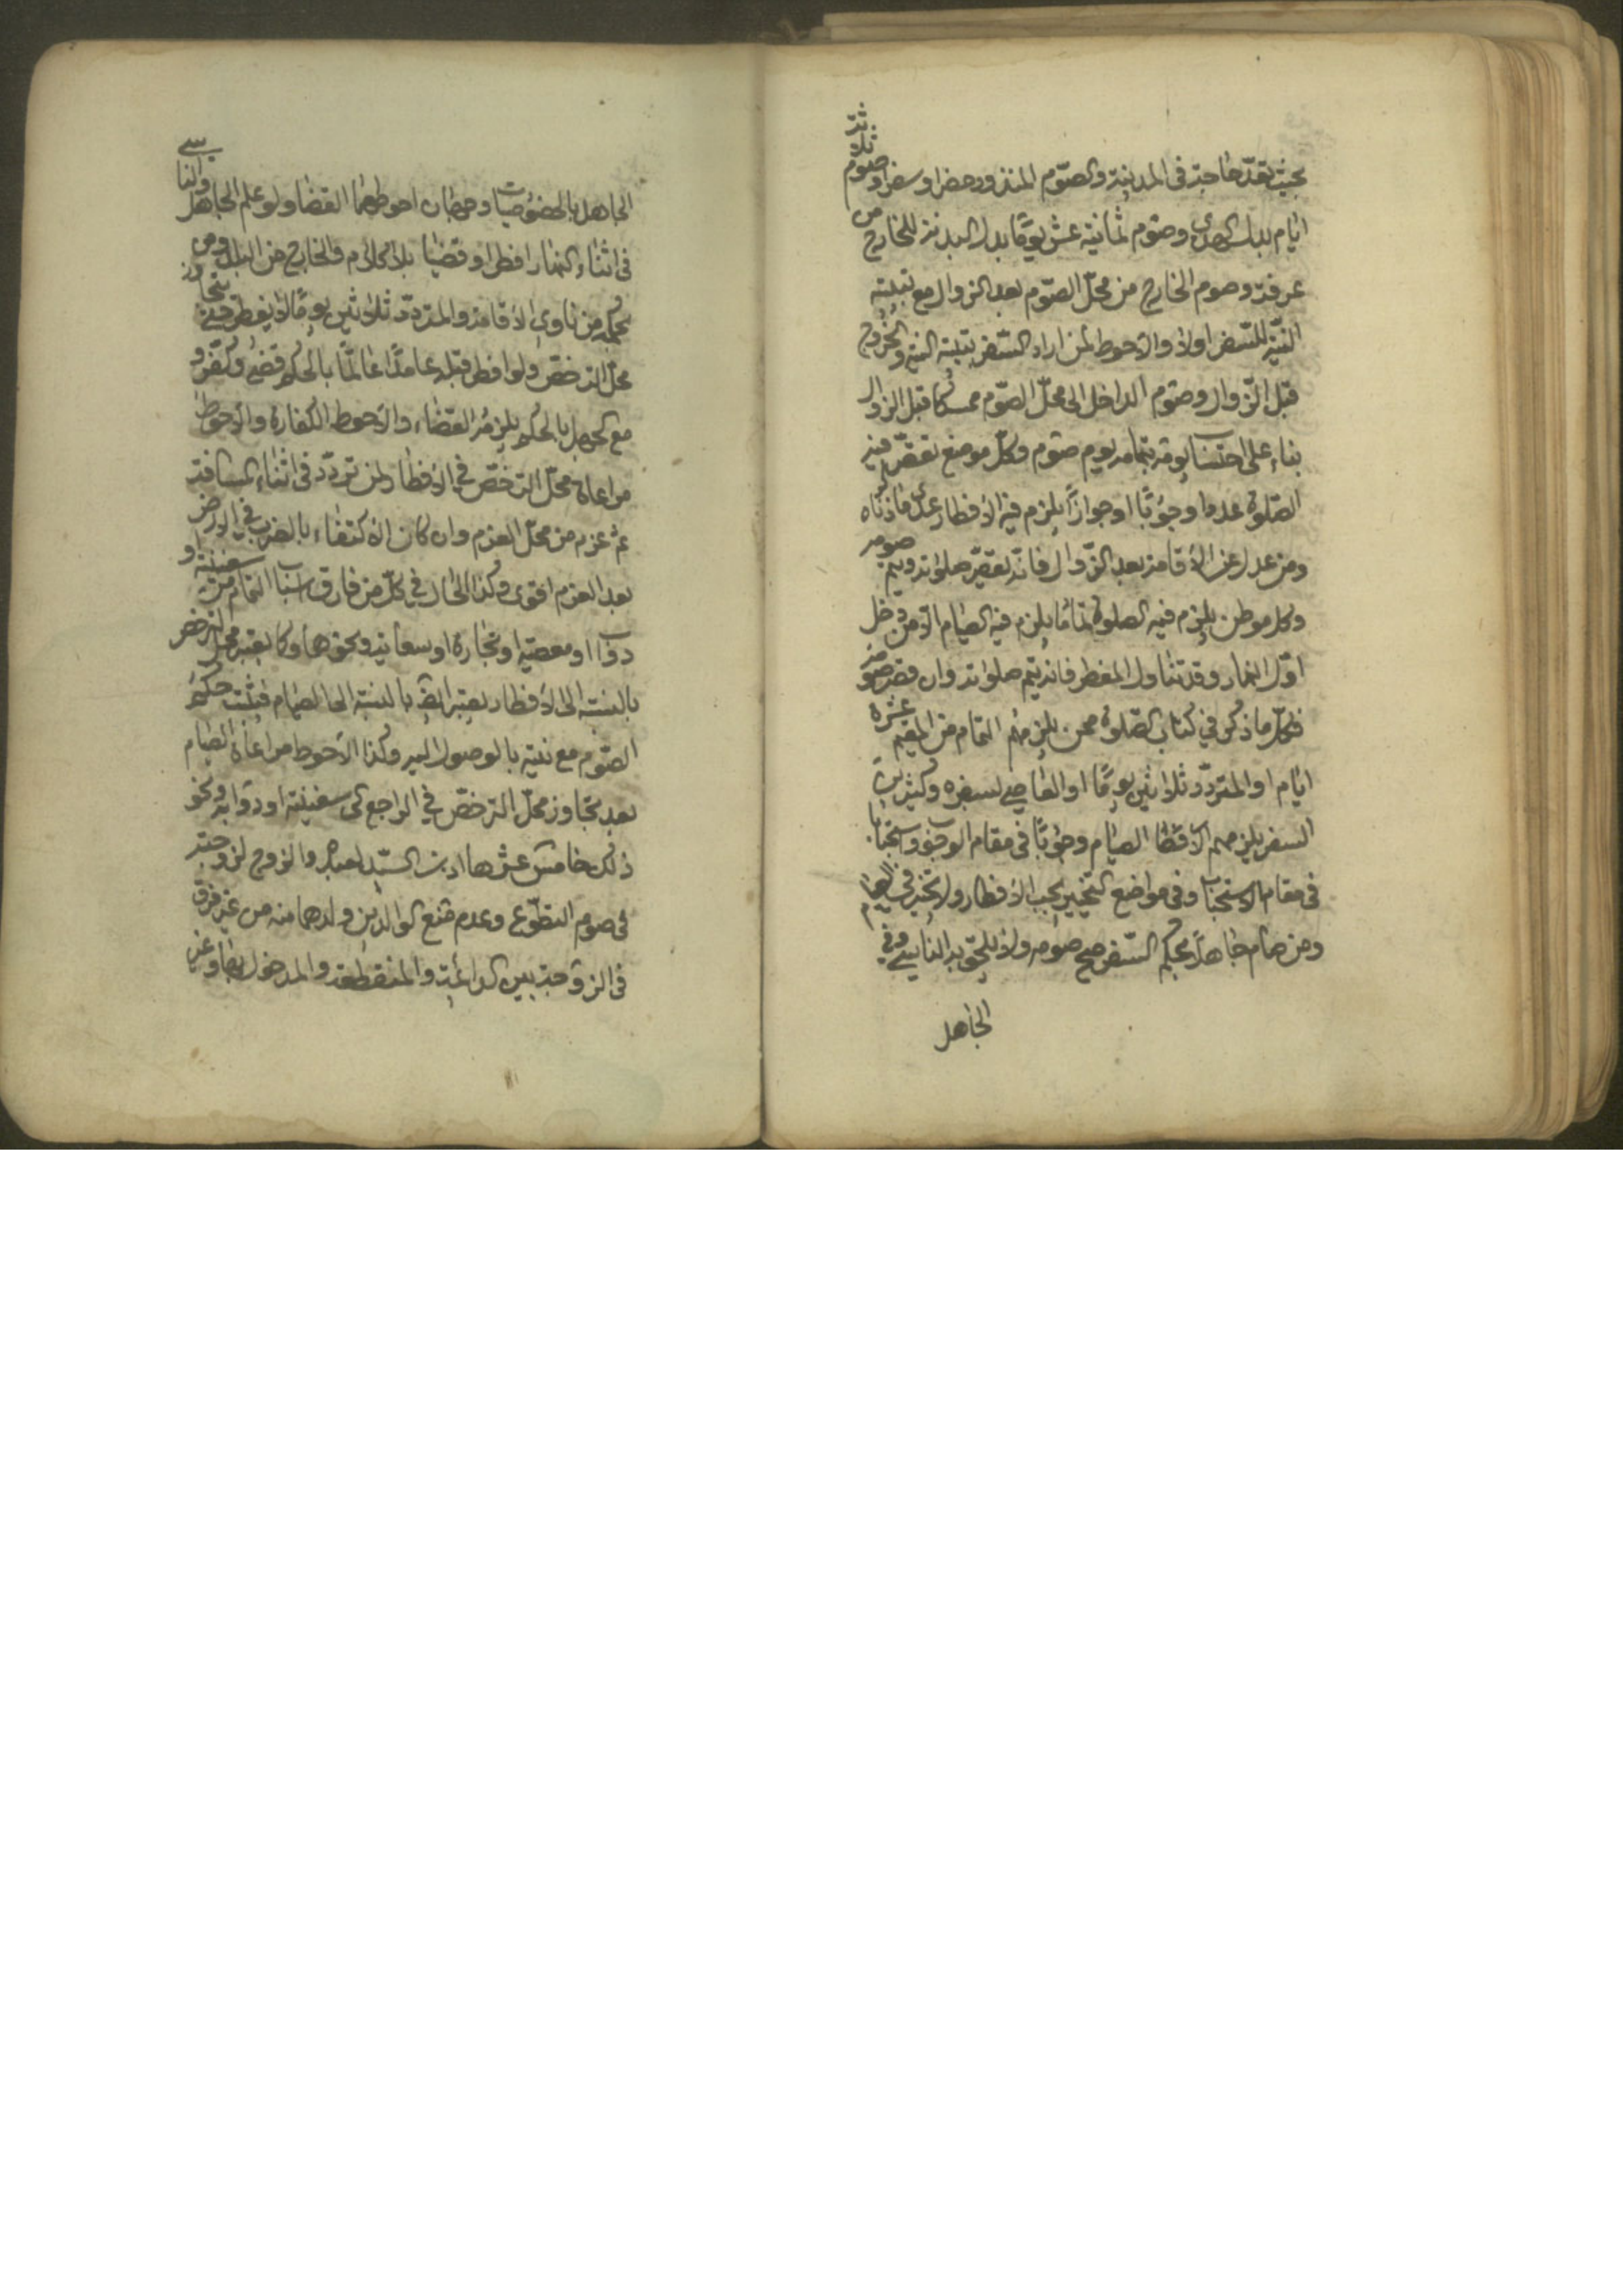 بحيث تعدّ حاجة في المدينة والصّوم المنذور حضرا وسفرا وصوم ثلاثة
ايام بدل الهدى وصوم ثمانية عشر يومًا بدل البدنة للخارج من
عرفة وصوم الخارج من محلّ الصّوم بعد الزوال مع تبيته
النيّة للسّفر اولا والاحوط لمن اراد السّفر تبيته النية والخروج
قبل الزّوال وصوم الداخل الى محلّ الصّوم ممسكا قبل الزوال
بناء على احتساب يومه بتمامه يوم صوم وكلّ موضع تقصّر فيه
الصّلوة عدا وجوبًا او جوازًا يلزم فيه الافطار عدى ما ذكرناه
ومن عدل عن الاقامة بعد الزّوال فانّه يقصّر صلوته ويتم صومه
وكل موطن يلزم فيه الصلوة تمامًا يلزم فيه الصيام الا من دخل
اوّل النهار وقد تناول المفطر فانه يتم صلوته وان قصر صومه
فكلّ ما ذكر في كتاب الصّلوة ممن يلزمهم التمام من المقيم عشرة
ايام او المتردّد ثلاثين يومًا او العاصي لسفره وكثير
السفر يلزمهم الصيام وجوبًا في مقام الوجوب واستحبابا
في مقام الاستحباب وفي مواضع التخيير يجب الافطار ولا تخيير في الصيام
ومن صام جاهلًا بحكم السّفر صح صومه ولا يلحق به الناسي وفي
الجاهل
الجاهل بالخصوصيات وجهان احوطهما القضا ولو علم الجاهل والناسي
في اثناء النهار افطرا وقضيا بلا كلام والخارج من البلد ومن
بحكمه من ناوى الاقامة والمتردّد ثلاثين يومًا لا يفطر حتى يتجاوز
محلّ الترخّص ولو افطر قبله عامدًا عالمًا بالحكم قضى وكفّر و
مع الجهل بالحكم يلزمه القضاء والاحوط الكفارة والاحوط
مراعاة محلّ الترخّص في الافطار لمن تردّد في اثناء المسافة
ثم عزم من محلّ العزم وان كان الاكتفاء بالضرب في الارض
بعد العزم اقوى وكذا الحال في كلّ من فارق اسباب التمام من سفينة او
دواب او معصية او تجارة او سعاية ونحوها وكما يعتبر محل الترخص
بالنسبة الى الافطار يعتبر ايضا بالنسبة الى الصيام فيثبت حكم
الصّوم مع نيته بالوصول اليه وكذا الاحوط مراعاة الصيام
بعد تجاوز محلّ الترخّص في الراجع الى سفينته او دوابه ونحو
ذلك خامس عشرها اذن السيّد لعبده والزوج لزوجته
في صوم التطوّع وعدم منع الوالدين ولدهما منه من غير فرق
في الزوجة بين الدائمة والمنقطعة والمدخول بها وغير